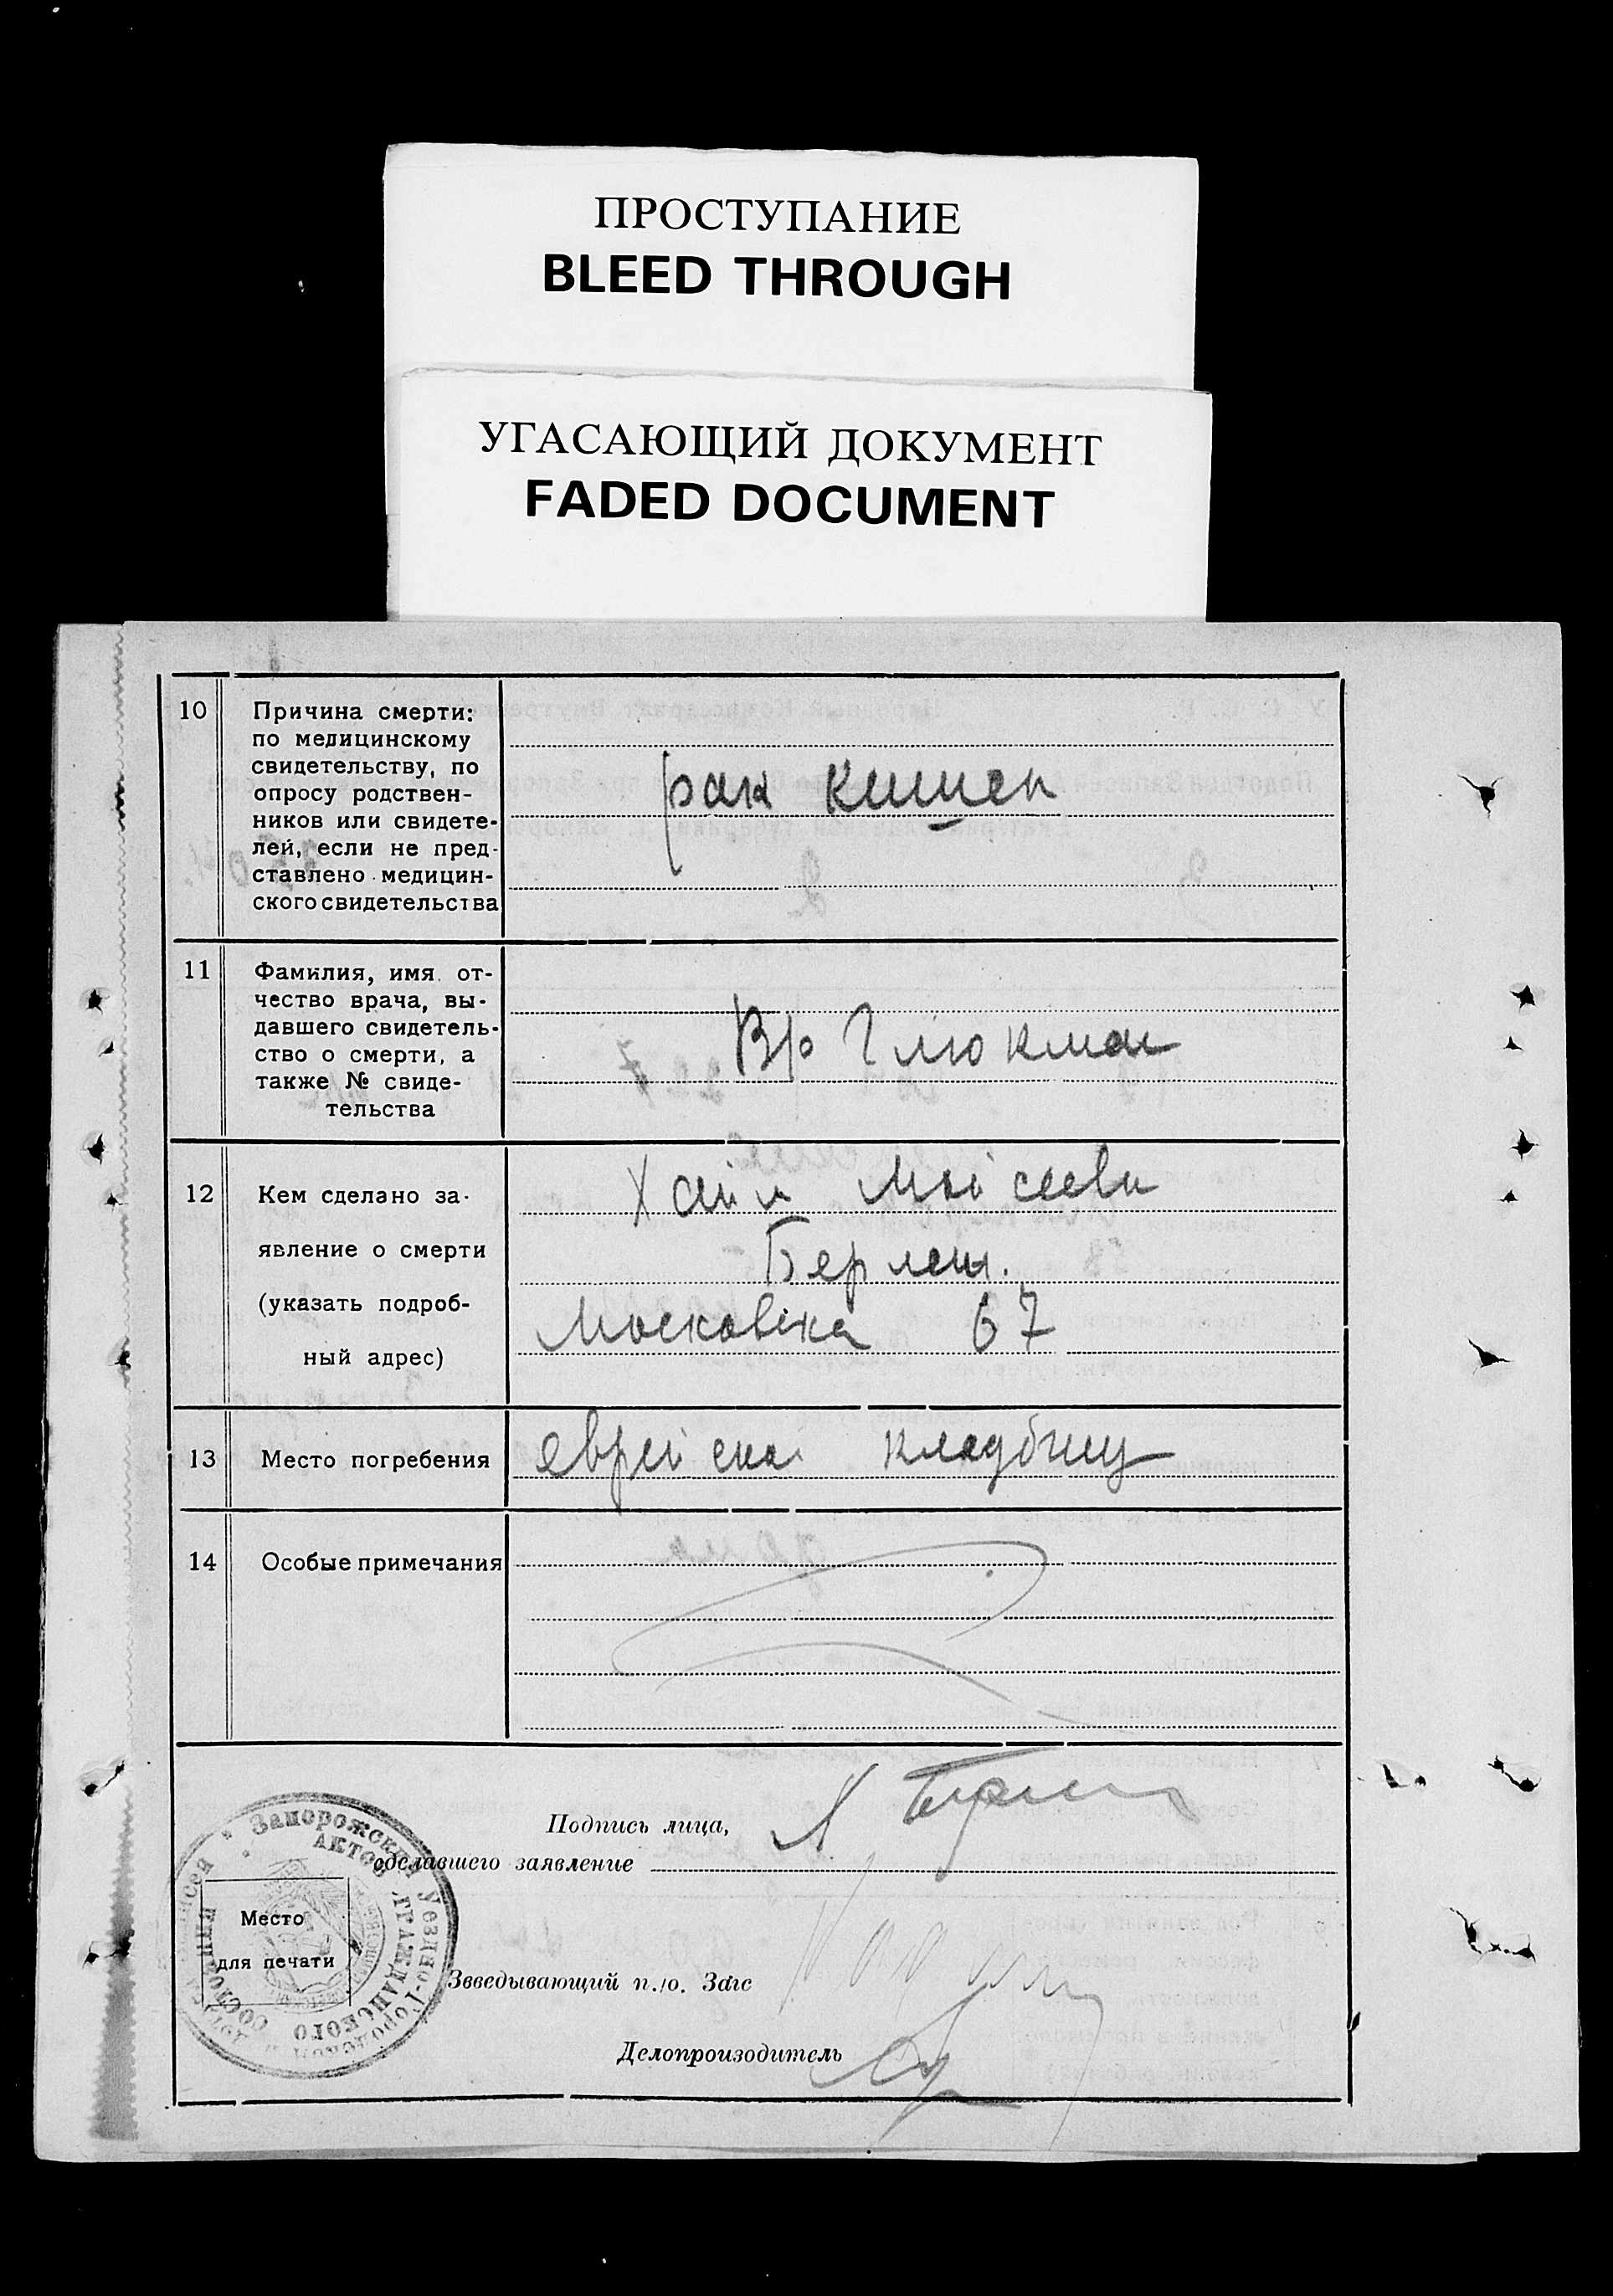 ПРОСТУПАНИЕ
BLEED THROUGH
УГАСАЮЩИЙ ДОКУМЕНТ
FADED DOCUMENT
10 Причина смерти:
по медицинскому
свидетельству, по
опросу родствен-
ников или свидете-
лей, если не пред-
ставлено медицин-
ского свидетельства
рак кишек
11 Фамилия, имя от-
чество врача, вы-
давшего свидетель-
ство о смерти, а
также № свиде-
тельства
Вр Глюкман
12 Кем сделано за-
явление о смерти
(указать подроб-
ный адрес)
Хаим Моисееви
Берлин.
Московска 67
13 Место погребения
еврейска кладбищ
14 Особые примечания
Подпись лица,
сделавшего заявление
Место
для печати
Зваедывающий п./о. Загс
Делопроизводитель
Запорожский
АКТОВ ГРАЖДАНСКОГО СОСТОЯНИЯ